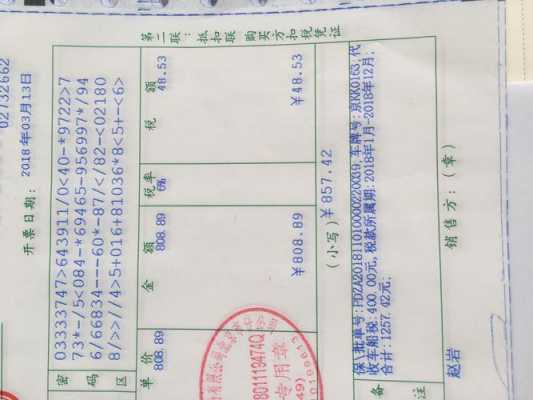 02732662
开票日期: 2018年03月13日
密码区
03333747>643911/0<40-*9722>7
73*-/5<084-*69465-956997*/94
6/66834---60*-87/</82-<02180
8/>>//4>5+016+81036*8<5+-<6>
单价 金额 税率 税额
808.89 808.89 6% 48.53
¥808.89 ¥48.53
(小写)¥857.42
备注
保(批单)号:PDZA201811010000220039, 车牌号:京KKO163,代
收车船税:400.00元,税款所属期:2018年1月-2018年12月;
合计:1257.42元;
赵岩 销售方:(章)
第二联:抵扣联 购买方扣税凭证
专用章